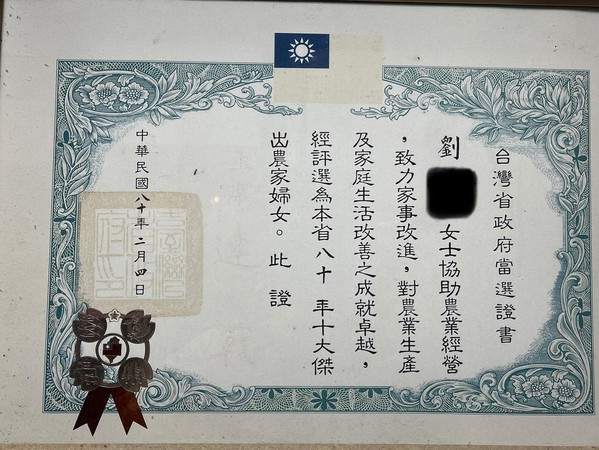 台灣省政府當選證書
劉 女士協助農業經營
，致力家事改進，對農業生產
及家庭生活改善之成就卓越，
經評選為本省八十 年十大傑
出農家婦女。此 證
中華民國八十年二月四日